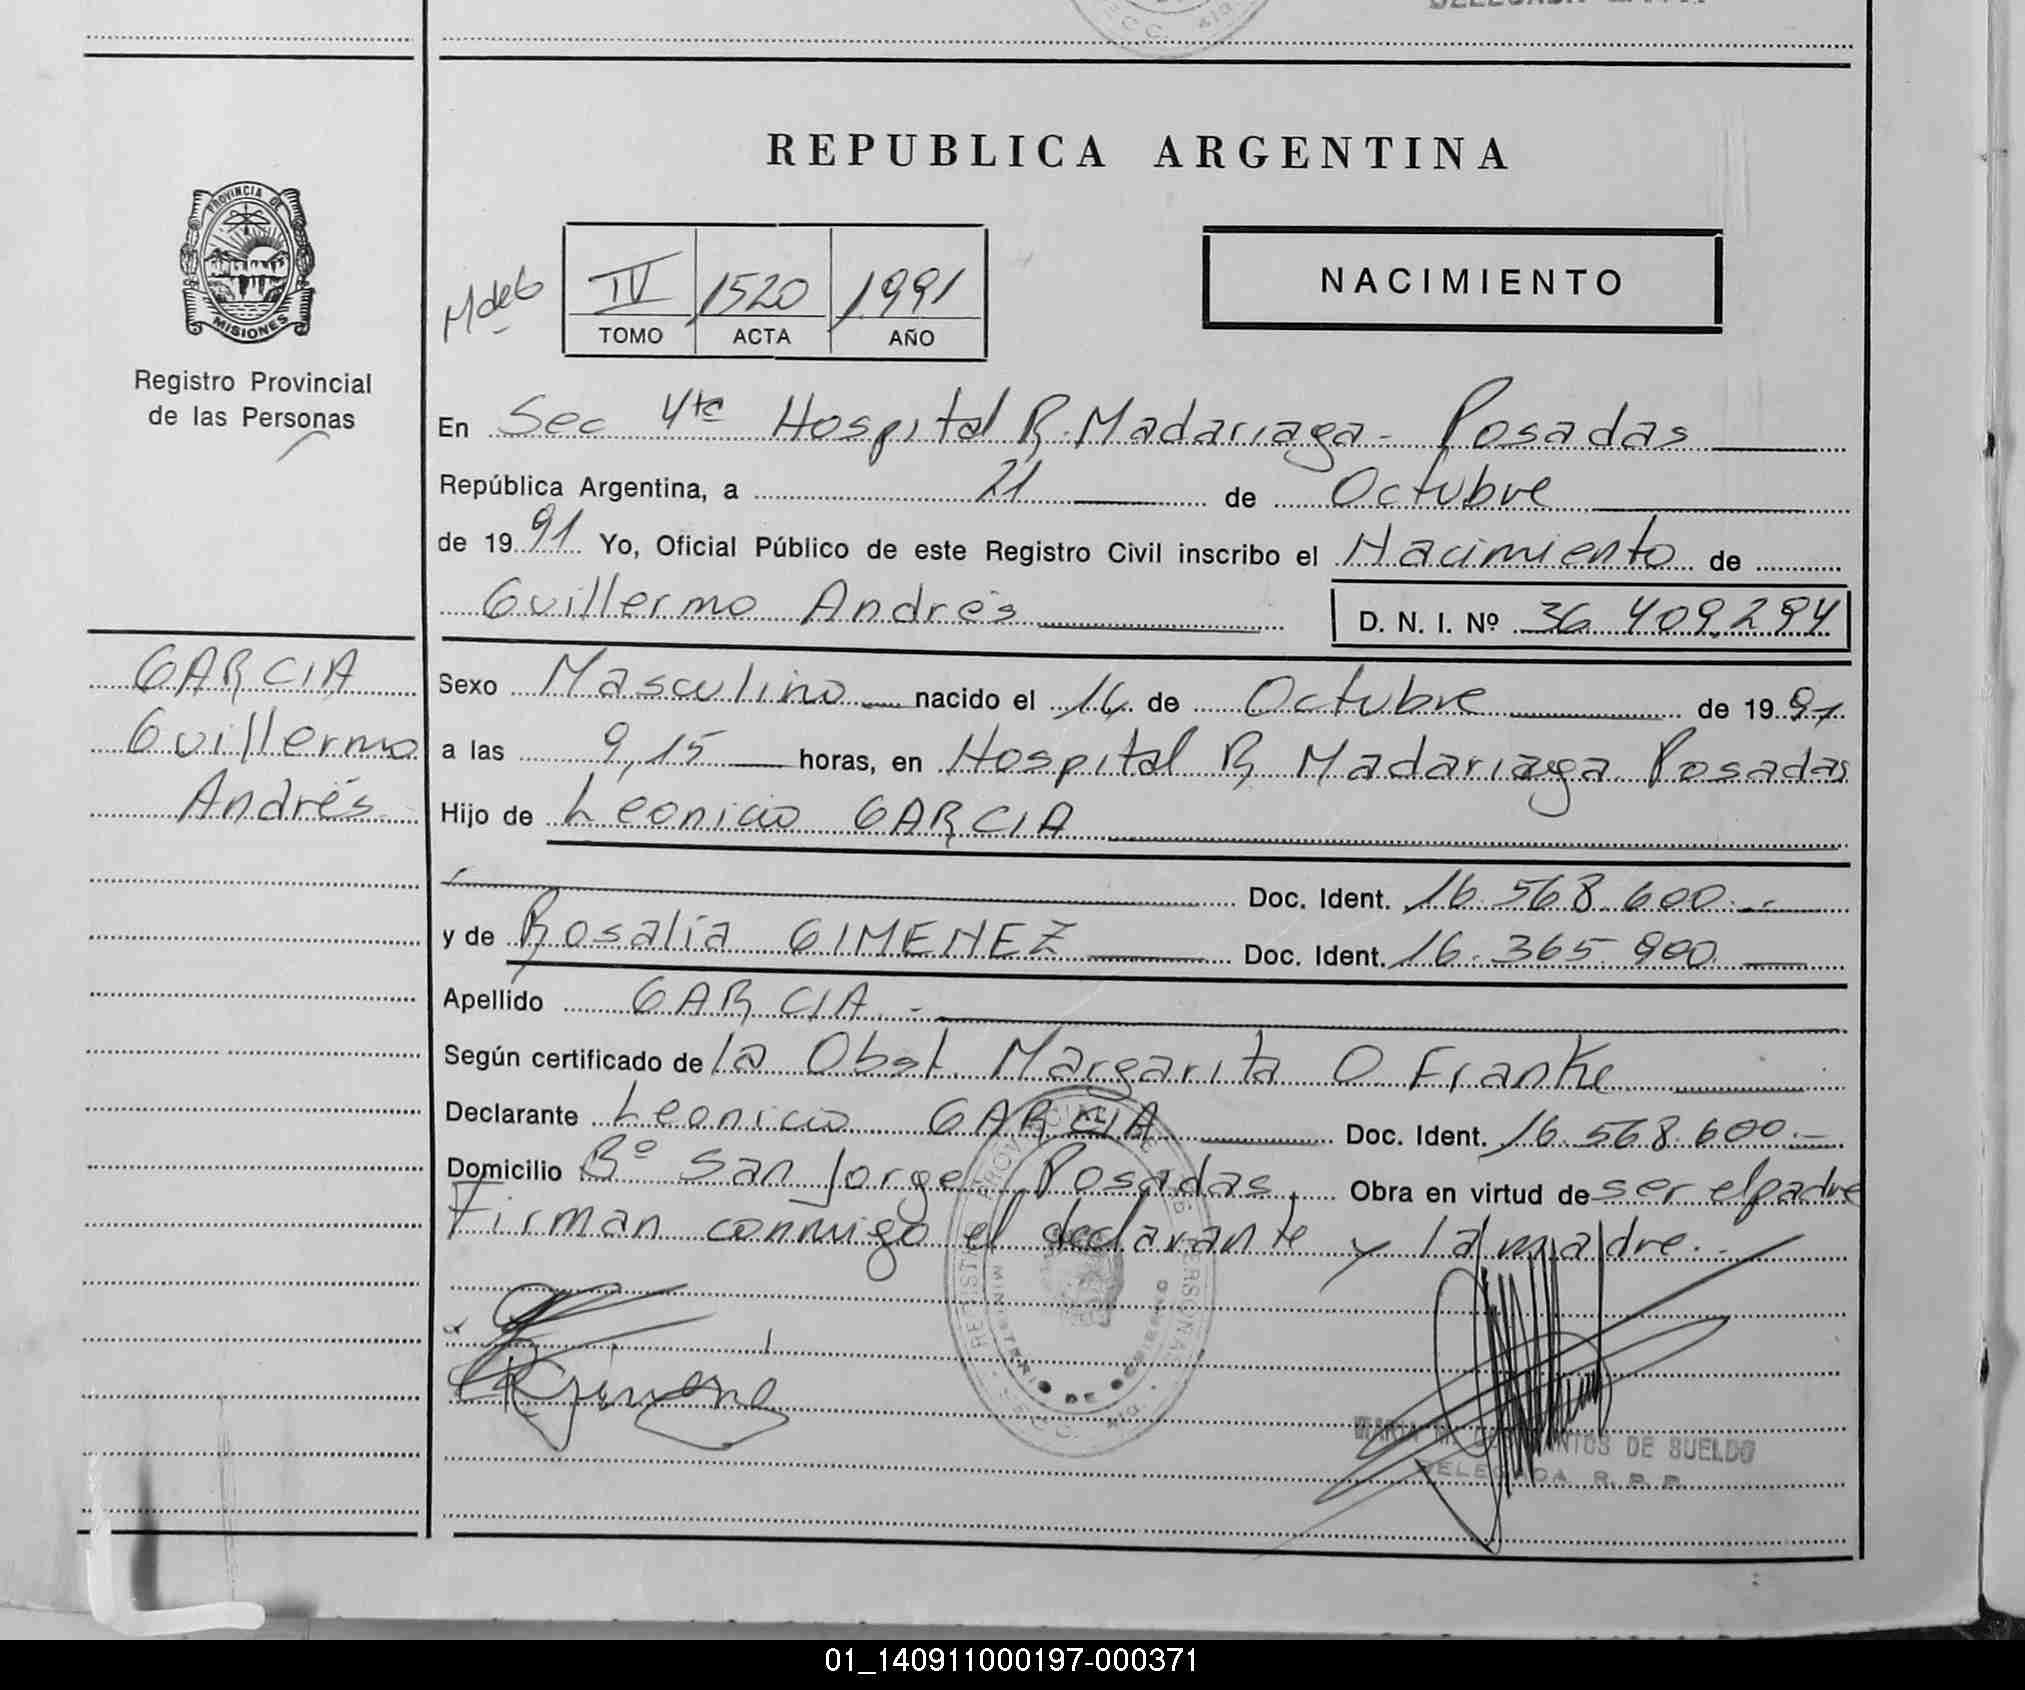 REPUBLICA ARGENTINA
PROVINCIA DE MISIONES
Registro Provincial
de las Personas
IV 1520 1991
TOMO ACTA AÑO
NACIMIENTO
En Sec 4ta Hospital R. Madariaga - Posadas
República Argentina, a 21 de Octubre
de 1991 Yo, Oficial Público de este Registro Civil inscribo el Nacimiento de
Guillermo Andrés D. N. I. Nº 36.409.294
GARCIA
Guillermo
Andrés
Sexo Masculino nacido el 16 de Octubre de 1991
a las 9,15 horas, en Hospital R. Madariaga Posadas
Hijo de Leonicio GARCIA
Doc. Ident. 16.568.600.-
y de Rosalía GIMENEZ Doc. Ident. 16.365.900.
Apellido GARCIA.-
Según certificado de la Obst. Margarita O. Franke
Declarante Leonicio GARCIA Doc. Ident. 16.568.600.-
Domicilio Bº San Jorge Posadas, Obra en virtud de ser el padre
Firman conmigo el declarante y la madre.
REGISTRO PROVINCIAL DE LAS PERSONAS
MINISTERIO DE GOBIERNO
SECC. 4ta.
DE SUELDO
DELEGADA R. P. P.
01_140911000197-000371